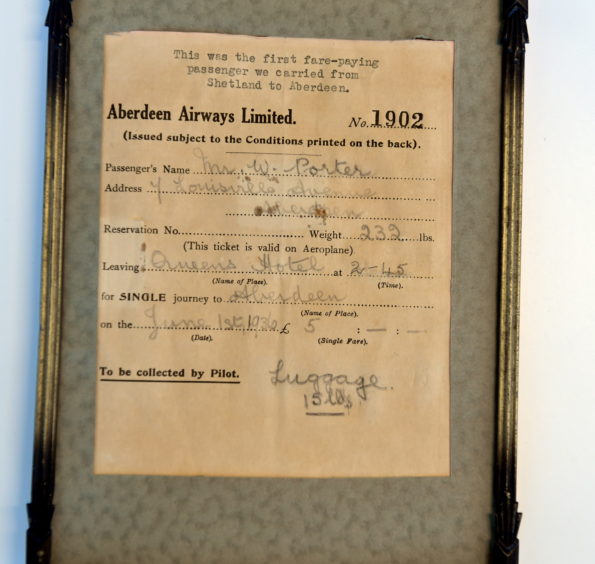 This was the first fare-paying
passenger we carried from
Shetland to Aberdeen.
Aberdeen Airways Limited.
No. 1902
(Issued subject to the Conditions printed on the back).
Passenger's Name Mr. W. Porter
Address 7 Louisville Avenue
Aberdeen
Reservation No. Weight 232 lbs.
(This ticket is valid on Aeroplane)
Leaving Queens Hotel at 2-45
(Name of Place). (Time).
for SINGLE journey to Aberdeen
(Name of Place).
on the June 1st, 1936 £ 5 : — : —
(Date). (Single Fare).
To be collected by Pilot.
Luggage.
15 lbs.